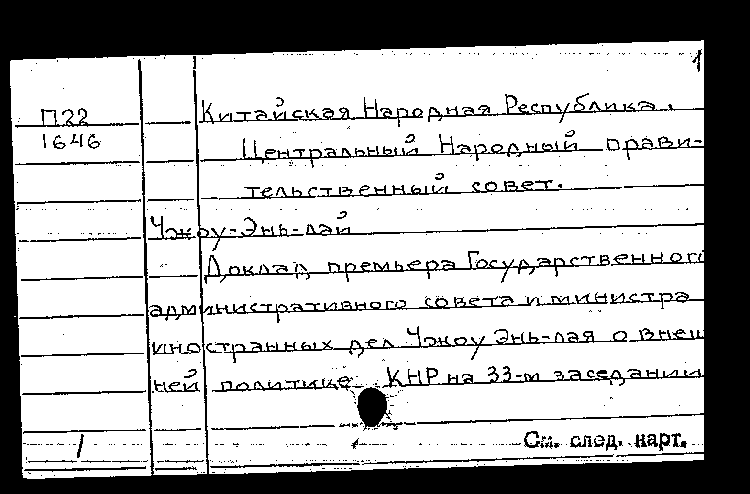 1
П22
1646
Китайская Народная Республика.
Центральный Народный прави-
тельственный совет.
Чжоу-Энь-лай
Доклад премьера Государственного
административного совета и министра
иностранных дел Чжоу Энь-лая о внеш
ней политике КНР на 33-м заседании
1
См. след. карт.